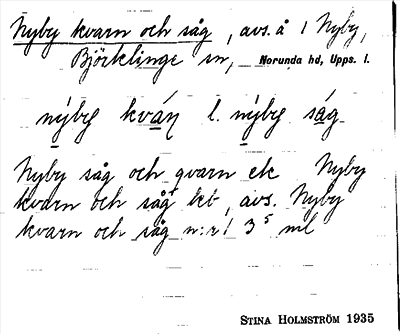 Nyby kvarn och såg, avs. å 1 Nyby,
Björklinge sn, Norunda hd, Upps. l.
nýby kván l. nýby ság
Nyby såg och qvarn ek Nyby
kvarn och såg kb, avs. Nyby
kvarn och såg n:r 1 3⁵ ml
STINA HOLMSTRÖM 1935